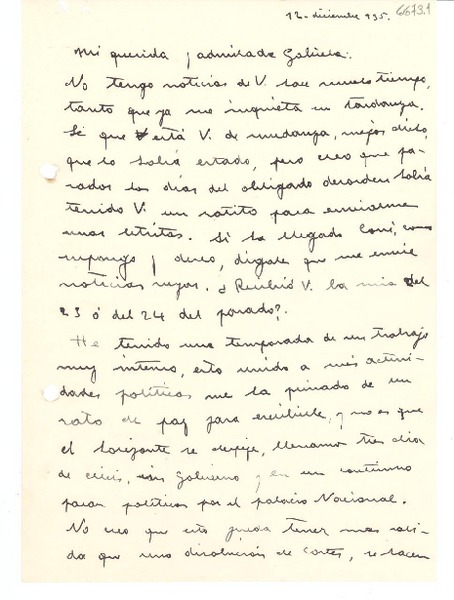 12-diciembre 935.
66731
Mi querida y admirada Gabriela.
No tengo noticias de V. hace mucho tiempo,
tanto que ya me inquieta su tardanza.
Sé que está V. de mudanza, mejor dicho,
que lo habrá estado, pero creo que pa-
sados los días del obligado desorden habrá
tenido V. un ratito para enviarme
unas letritas. Si ha llegado Coni, como
supongo y deseo, dígale que me envíe
noticias suyas. ¿Recibió V. la mía del
23 ó del 24 del pasado?.
He tenido una temporada de un trabajo
muy intenso, esto unido a mis activi-
dades políticas me ha privado de un
rato de paz para escribirle, y no es que
el horizonte se despeje, llevamos tres días
de crisis, sin Gobierno y en un continuo
pasar políticos por el palacio Nacional.
No creo que esto pueda tener mas sali-
da que una disolución de Cortes, se hacen